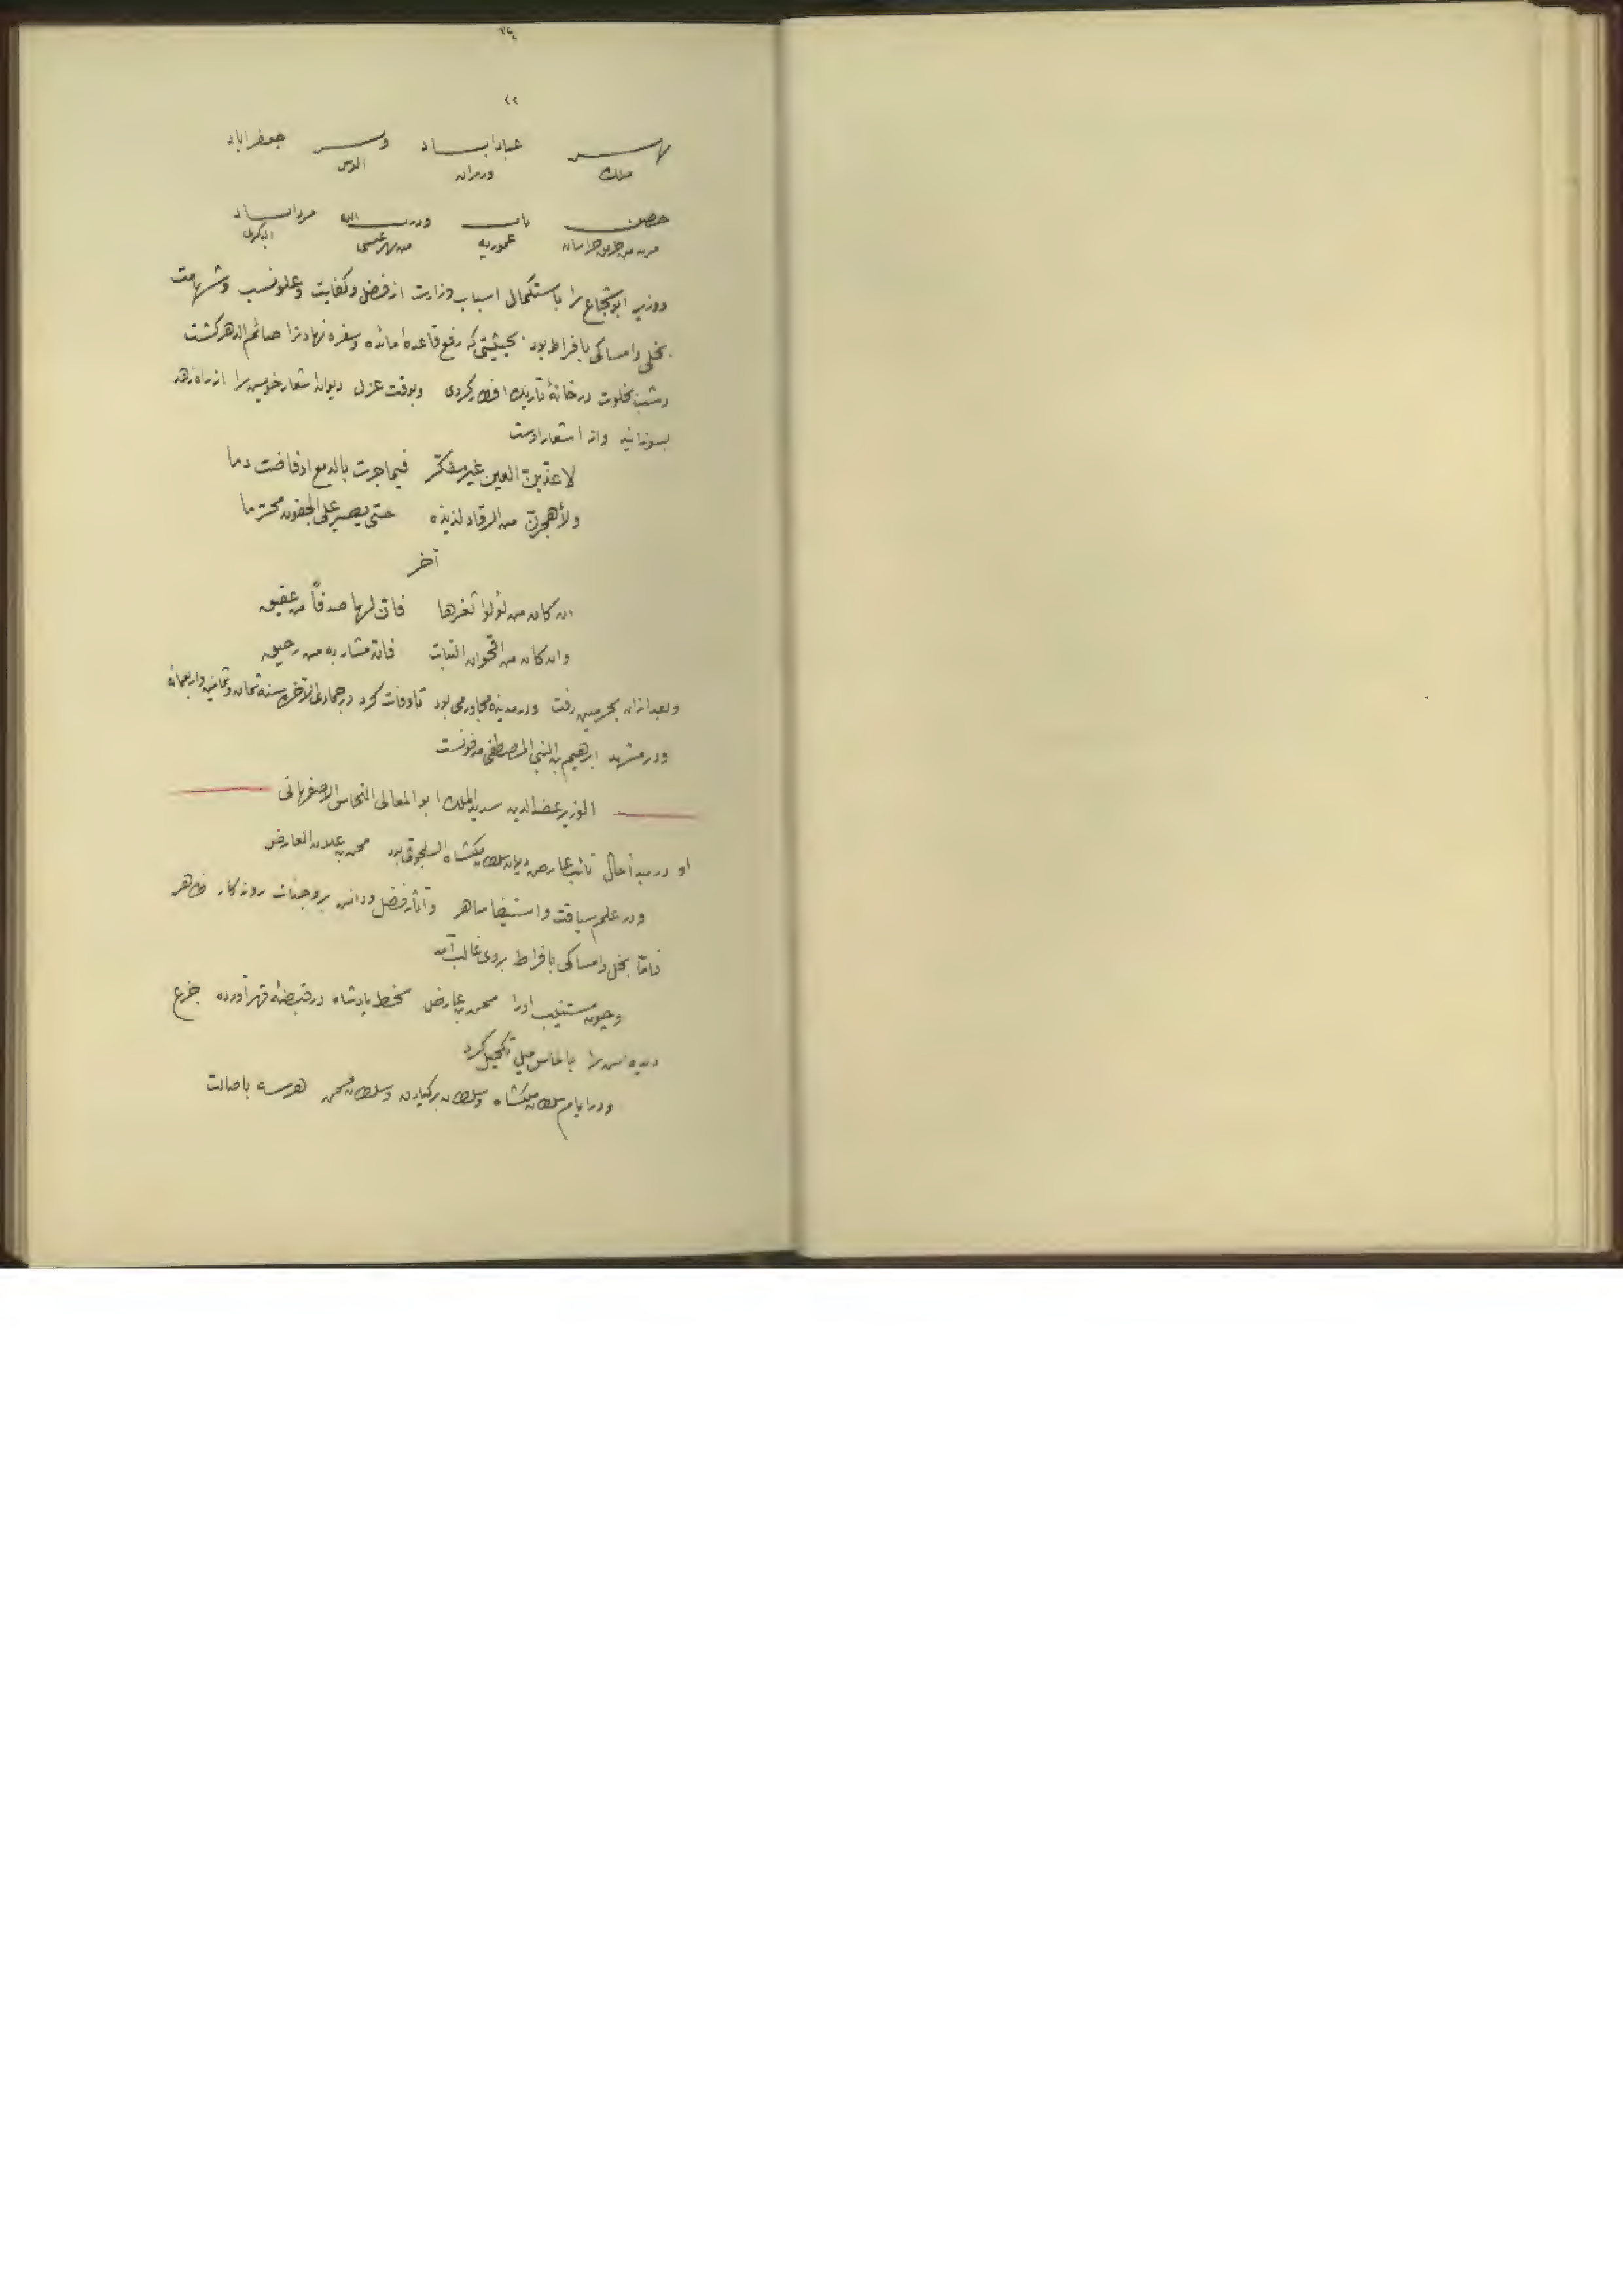 ۲۲
نهر عباداباد وسر جعفراباد
ملك
حصن باب ودرب
من طریق خراسان عموریه من نهر عیسی
ووزیر ابو شجاع را باستکمال اسباب وزارت از فضل وکفایت وعلو نسب وشهامت
بخلی وامساکی بافراط بود بحیثیتی که رفع قاعدهٔ مائده وسفره نهاد ترا صائم الدهر کشت
وشب بخلوت در خانهٔ تاریك افطار کردی وبوقت عزل دیوان اشعار خویش را از راه زهد
بسوزانید واز اشعار اوست
لاعذّبنّ العین غیر مفکّر فیما جرت بالدمع او فاضت دما
ولأهجرنّ من الرقاد لذیذه حتی یصیر علی الجفون محرّما
آخر
ان کان من لؤلؤ ثغرها فانّ لها صدفاً من عقیق
وان کان من اقحوان النبات فانّ مشاربه من رحیق
وبعد ازان بحرمین رفت ودر مدینه مجاور می بود تا وفات کرد در جمادی الآخره سنه ثمان وثمانین واربعمائه
ودر مشهد ابرهیم بن النبی المصطفی مدفونست
الوزیر عضد الدین سدید الملك ابو المعالی النحاس الاصفهانی
او در مبدأ حال نائب عارض دیوان سلطان ملکشاه السلجوقی بود محمد بن علان العارض
ودر علم سیاقت واستیفا ماهر وآثار فضل ودانش بر وجنات روزکار ظاهر
فامّا بخل وامساکی بافراط بر وی غالب آمد
وچون مستنیب اورا محمد عارض سخط پادشاه در قبضهٔ قهر آورده جزع
دیده اش را بالماس میل تکحیل کرد
ودر ایام سلطان ملکشاه وسلطان برکیارق وسلطان محمد هر سه باصالت